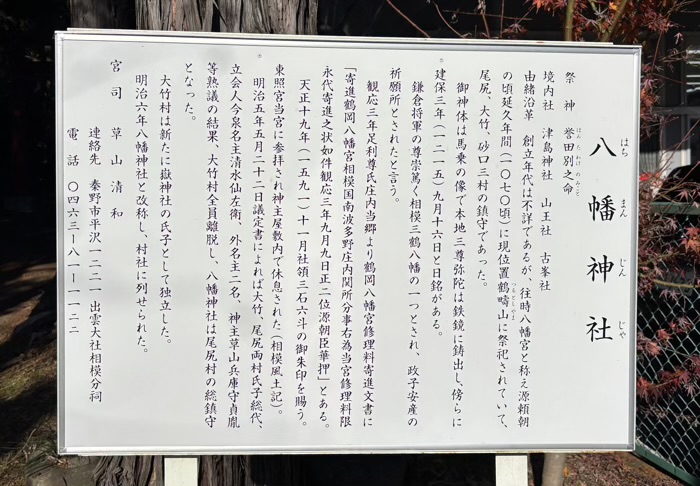 八幡神社
はち まん じん じゃ
祭神 誉田別之命
ほんたわけのみこと
境内社 津島神社 山王社 古峯社
由緒沿革 創立年代は不詳であるが、往時八幡宮と称え源頼朝
の頃延久年間(一〇七〇頃)に現位置鶴疇山に祭祀されていて、
つるとしやま
尾尻、大竹、砂口三村の鎮守であった。
御神体は馬乗の像で本地三尊弥陀は鉄鏡に鋳出し、傍らに
建保三年(一二一五)九月十六日と日銘がある。
鎌倉将軍の尊崇篤く相模三鶴八幡の一つとされ、政子安産の
祈願所とされたと言う。
観応三年足利尊氏庄内当郷より鶴岡八幡宮修理料寄進文書に
「寄進鶴岡八幡宮相模国南波多野庄内関所分事右為当宮修理料限
永代寄進之状如件観応三年九月九日正二位源朝臣華押」とある。
天正十九年(一五九一)十一月社領三石六斗の御朱印を賜う。
東照宮当宮に参拝され神主屋敷内で休息された(相模風土記)。
明治五年五月二十二日議定書によれば大竹、尾尻両村氏子総代、
立会人今泉名主清水仙左衛、外名主二名、神主草山兵庫守貞胤
等熟議の結果、大竹村全員離脱し、八幡神社は尾尻村の総鎮守
となった。
大竹村は新たに嶽神社の氏子として独立した。
明治六年八幡神社と改称し、村社に列せられた。
宮司 草山清和
連絡先 秦野市平沢一二二一 出雲大社相模分祠
電話 〇四六三ー八一ー一一二二